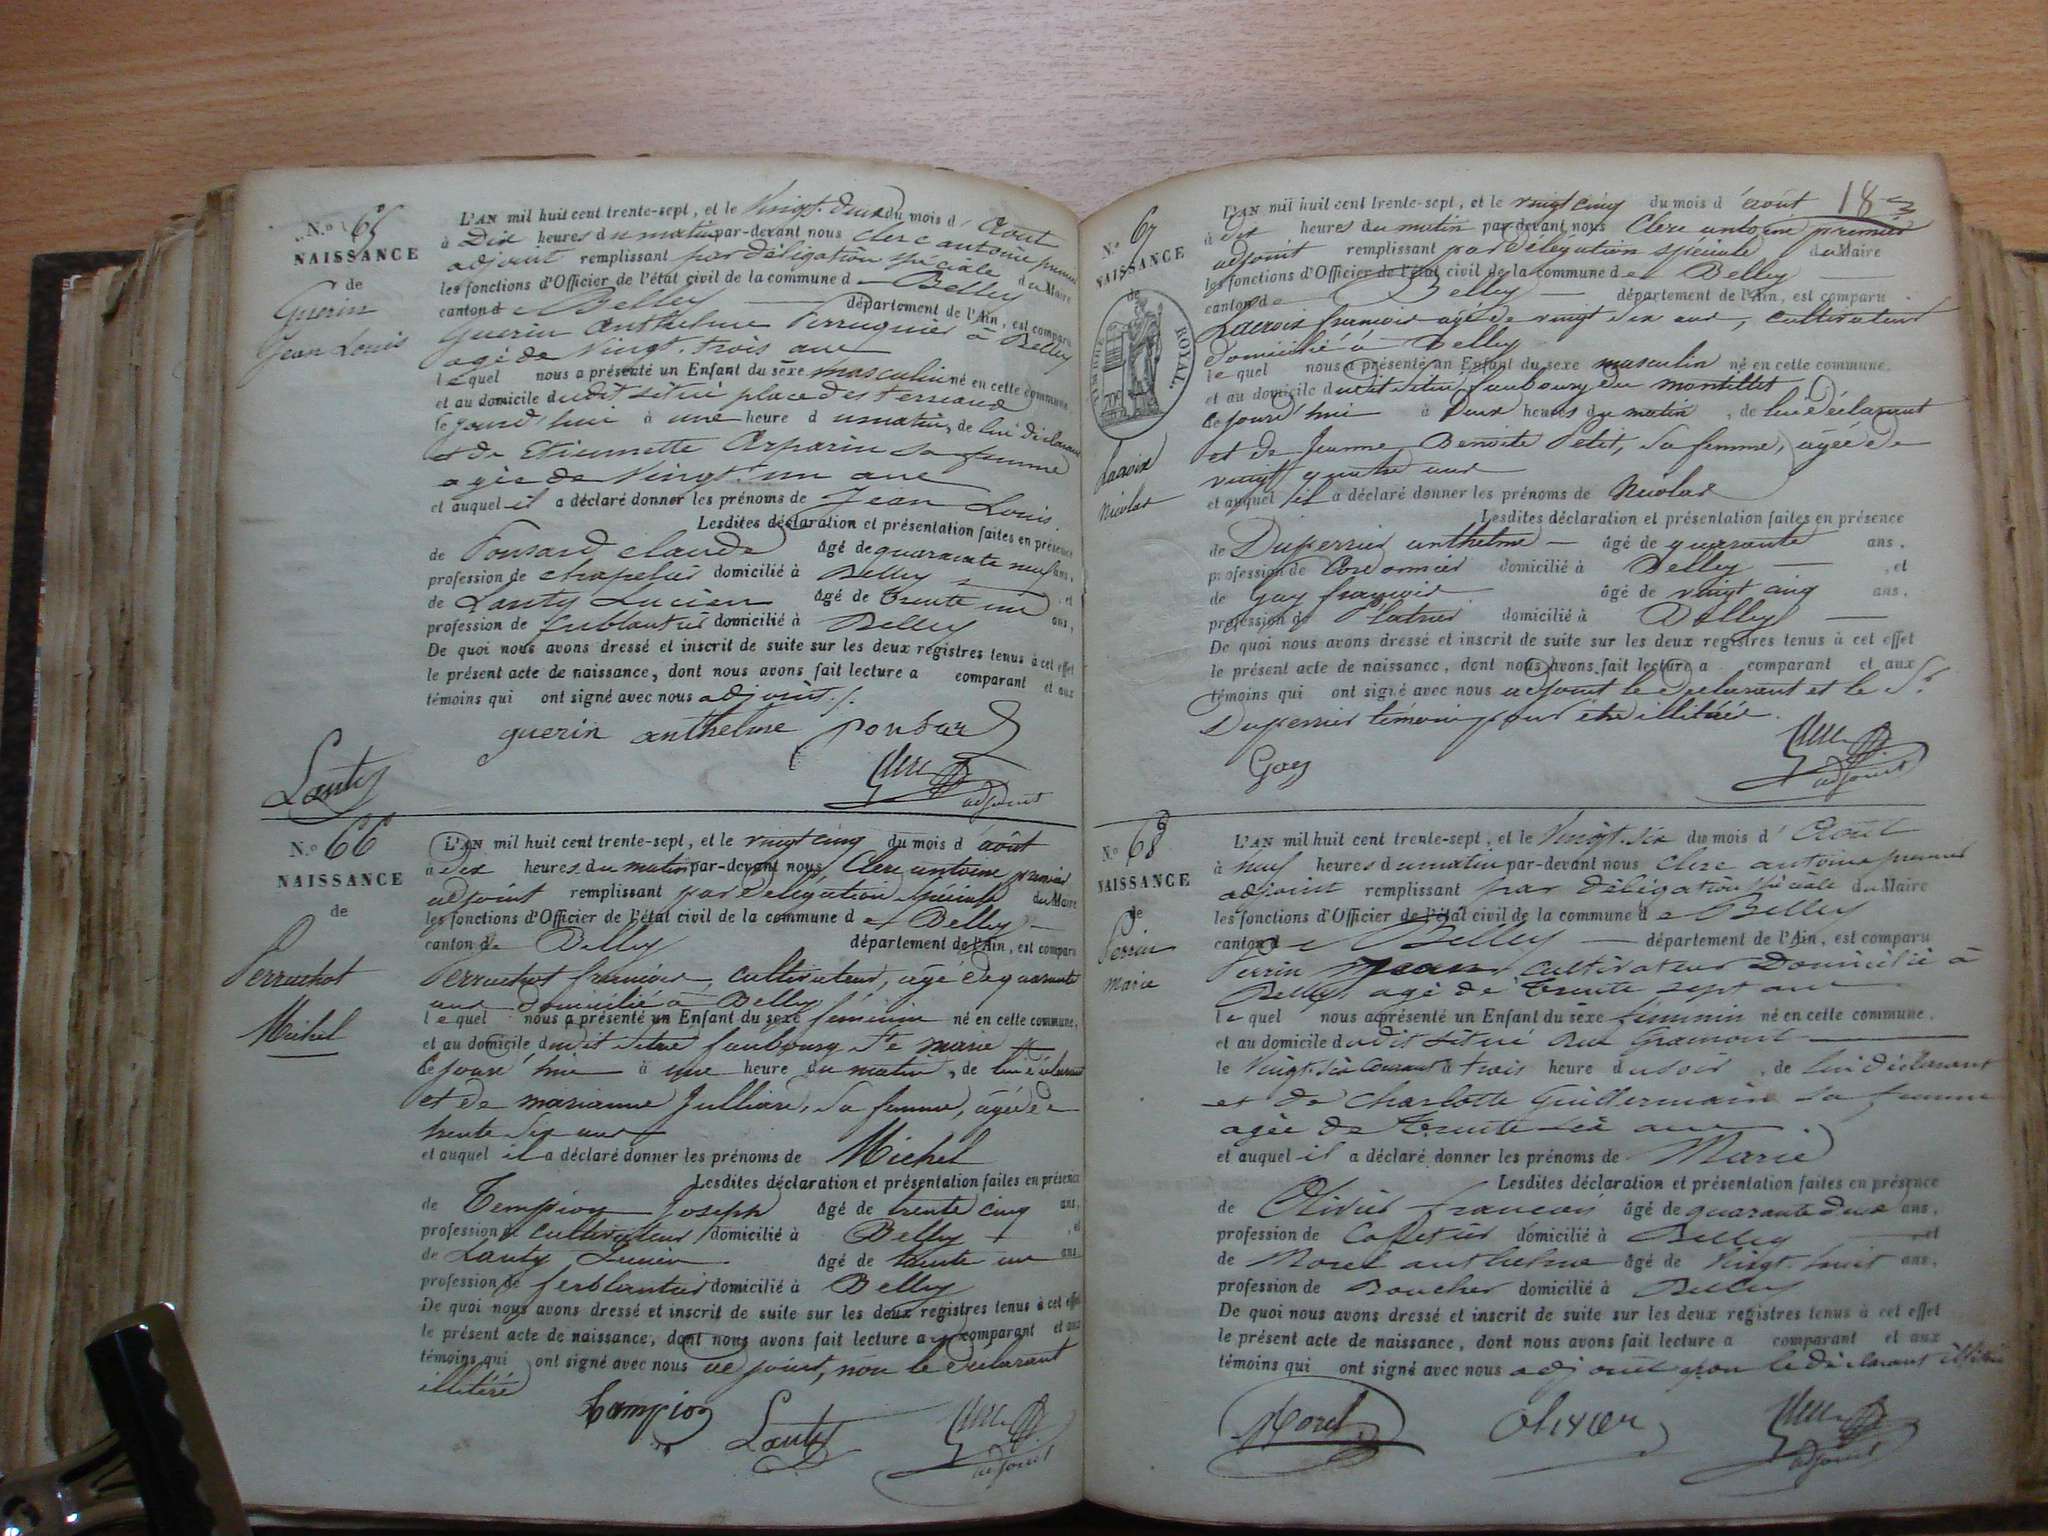 N.º 65
NAISSANCE
de
Guerin
Jean Louis
L'AN mil huit cent trente-sept, et le Vingt-deux du mois d'Août
à Dix heures du matin par-devant nous Clerc antoine premier
adjoint remplissant par délégation spéciale du Maire
les fonctions d'Officier de l'état civil de la commune de Belley
canton de Belley département de l'Ain, est comparu
Guerin Anthelme Perruquier à Belley
agé de Vingt-trois ans
lequel nous a présenté un Enfant du sexe masculin né en cette commune
et au domicile dudit situé place des terreaux
le jourd'hui à une heure du matin, de lui déclarant
et de Etiennette Arparin sa femme
agée de Vingt-un ans
et auquel il a déclaré donner les prénoms de Jean Louis.
Lesdites déclaration et présentation faites en présence
de Ponsard Claude âgé de quarante neuf ans,
profession de chapelier domicilié à Belley , et
de Lanty Lucien âgé de trente un ans,
profession de ferblantier domicilié à Belley
De quoi nous avons dressé et inscrit de suite sur les deux registres tenus à cet effet
le présent acte de naissance, dont nous avons fait lecture a comparant et aux
témoins qui ont signé avec nous adjoint./.
guerin anthelme ponsard
Lanty Clerc
adjoint
N.º 66
NAISSANCE
de
Perruchot
Michel
L'AN mil huit cent trente-sept, et le vingt cinq du mois d'août
à dix heures du matin par-devant nous Clerc antoine premier
adjoint remplissant par délégation spéciale du Maire
les fonctions d'Officier de l'état civil de la commune de Belley
canton de Belley département de l'Ain, est comparu
Perruchot françois, cultivateur, âgé de quarante
ans domicilié à Belley
lequel nous a présenté un Enfant du sexe féminin né en cette commune,
et au domicile dudit situé faubourg Ste marie
le jourd'hui à une heure du matin, de lui déclarant
et de marianne Julliard, sa femme, âgée de
trente six ans
et auquel il a déclaré donner les prénoms de Michel
Lesdites déclaration et présentation faites en présence
de Tempion Joseph âgé de trente cinq ans,
profession de cultivateur domicilié à Belley , et
de Lanty Lucien âgé de trente un ans
profession de ferblantier domicilié à Belley
De quoi nous avons dressé et inscrit de suite sur les deux registres tenus à cet effet
le présent acte de naissance, dont nous avons fait lecture au comparant et aux
témoins qui ont signé avec nous adjoint, non le déclarant
illitéré
Lanty Clerc
adjoint
183
N.º 67
NAISSANCE
de
TIMBRE ROYAL.
Lacroix
Nicolas
L'AN mil huit cent trente-sept, et le vingt cinq du mois d'août
à dix heures du matin par devant nous Clerc antoine premier
adjoint remplissant par délégation spéciale du Maire
les fonctions d'Officier de l'état civil de la commune de Belley
canton de Belley département de l'Ain, est comparu
Lacroix françois agé de vingt six ans, cultivateur
domicilié à Belley
lequel nous a présenté un Enfant du sexe masculin né en cette commune.
et au domicile dudit situé faubourg du montillet
le jourd'hui à deux heures du matin, de lui déclarant
et de Jeanne Benoite Petit, sa femme, âgée de
vingt quatre ans
et auquel il a déclaré donner les prénoms de Nicolas
Lesdites déclaration et présentation faites en présence
de Duperrier anthelme âgé de quarante ans,
profession de Cordonnier domicilié à Belley , et
de Gay françois âgé de vingt cinq ans,
profession de Platrier domicilié à Belley
De quoi nous avons dressé et inscrit de suite sur les deux registres tenus à cet effet
le présent acte de naissance, dont nous avons fait lecture a comparant et aux
témoins qui ont signé avec nous adjoint le déclarant et le Sr
Duperrier témoin pour être illitéré.
Gay Clerc
adjoint
N.º 68
NAISSANCE
de
Perrin
marie
L'AN mil huit cent trente-sept, et le Vingt-six du mois d'Août
à neuf heures du matin par-devant nous Clerc antoine premier
adjoint remplissant par délégation spéciale du Maire
les fonctions d'Officier de l'état civil de la commune de Belley
canton de Belley département de l'Ain, est comparu
Perrin Jean cultivateur domicilié à
Belley agé de trente sept ans
lequel nous a présenté un Enfant du sexe féminin né en cette commune.
et au domicile dudit situé Rue Gramont
le Vingt-six courant à trois heure du soir, de lui déclarant
et de Charlotte Guillermain sa femme
agée de trente six ans.
et auquel il a déclaré donner les prénoms de Marie
Lesdites déclaration et présentation faites en présence
de Olivier francois âgé de quarante deux ans,
profession de Cafetier domicilié à Belley , et
de Morel anthelme âgé de Vingt-huit ans,
profession de Boucher domicilié à Belley
De quoi nous avons dressé et inscrit de suite sur les deux registres tenus à cet effet
le présent acte de naissance, dont nous avons fait lecture a comparant et aux
témoins qui ont signé avec nous adjoint non le déclarant
Morel Olivier Clerc
adjoint